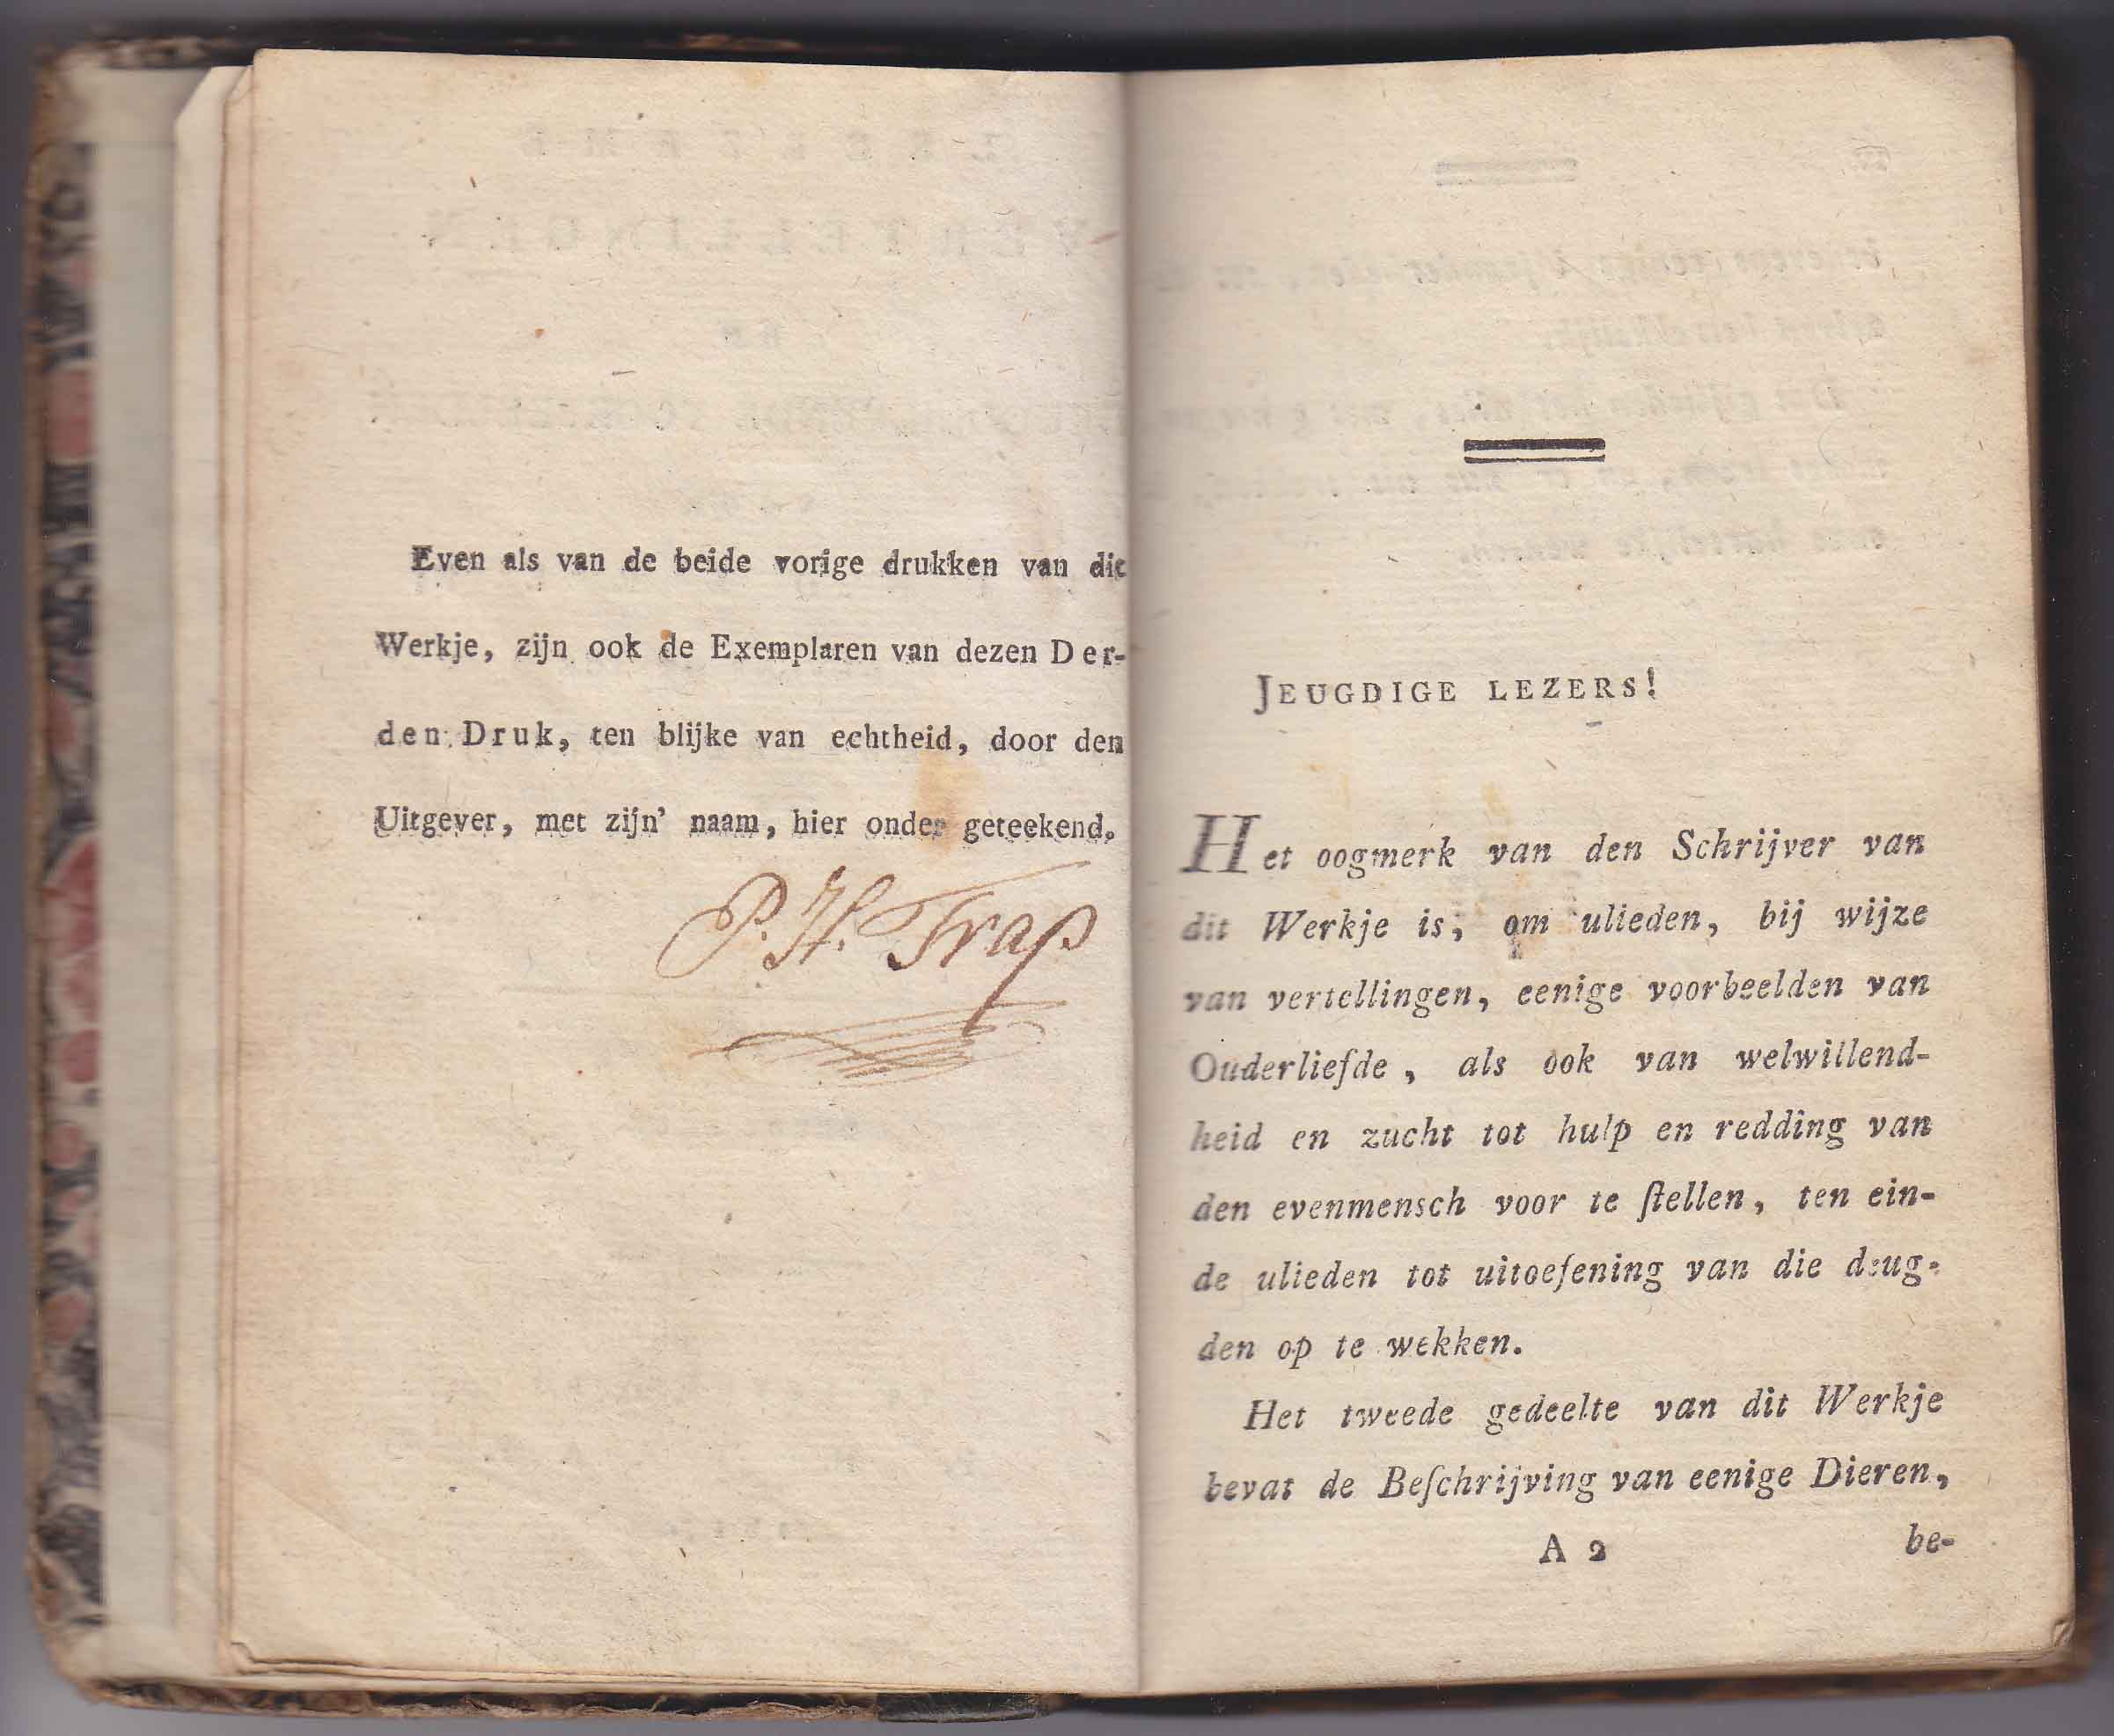 Even als van de beide vorige drukken van dit
Werkje, zijn ook de Exemplaren van dezen Der-
den Druk, ten blijke van echtheid, door den
Uitgever, met zijn' naam, hier onder geteekend.
P. H. Trap
JEUGDIGE LEZERS!
Het oogmerk van den Schrijver van
dit Werkje is, om ulieden, bij wijze
van vertellingen, eenige voorbeelden van
Ouderliefde, als ook van welwillend-
heid en zucht tot hulp en redding van
den evenmensch voor te ſtellen, ten ein-
de ulieden tot uitoefening van die deug-
den op te wekken.
Het tweede gedeelte van dit Werkje
bevat de Beſchrijving van eenige Dieren,
A 2 be-